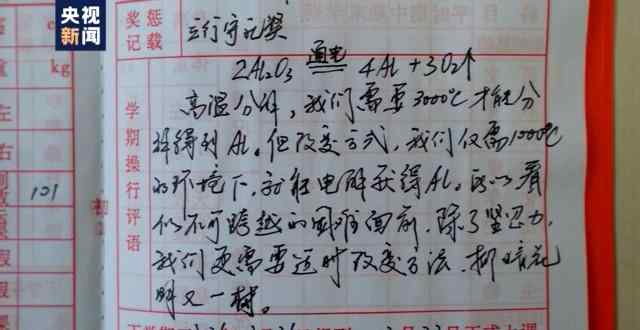 央视新闻
惩奖记载
kg
左
右
101
初
立行守礼奖
2Al₂O₃ 通电 4Al+3O₂↑
学期操行评语
高温分解,我们需要3000℃才能分
解得到Al。但改变方式,我们仅需1000℃
的环境下,就能电解获得Al。所以看
似不可跨越的困难面前,除了坚忍力,
我们更需要适时改变方法,柳暗花
明又一村。